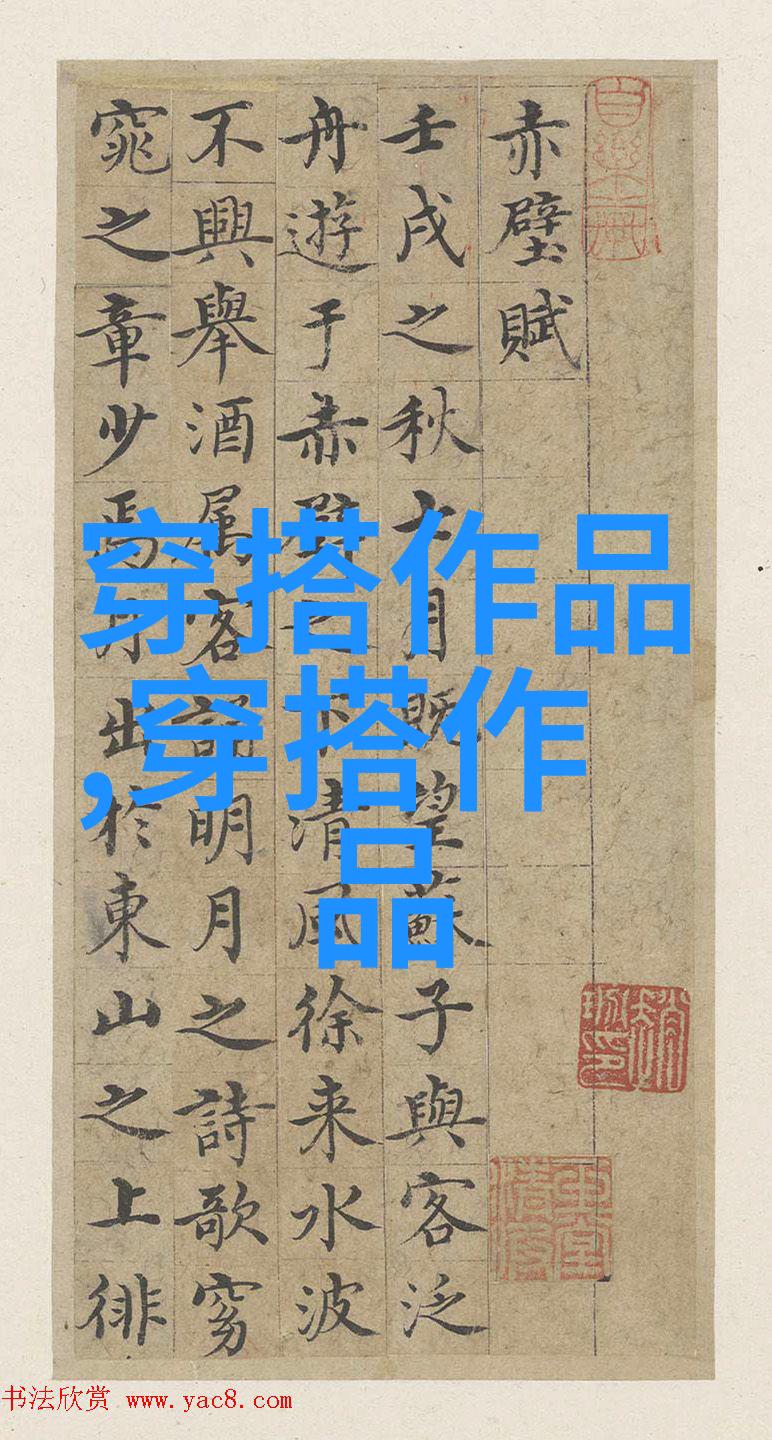 赤壁賦
壬戌之秋七月既望蘇子與客泛
舟遊于赤壁之下清風徐来水波
不興舉酒属客誦明月之詩歌窈
窕之章少焉月出於東山之上徘
穿搭作品
,穿搭作
品
书法欣赏 www.yac8.com